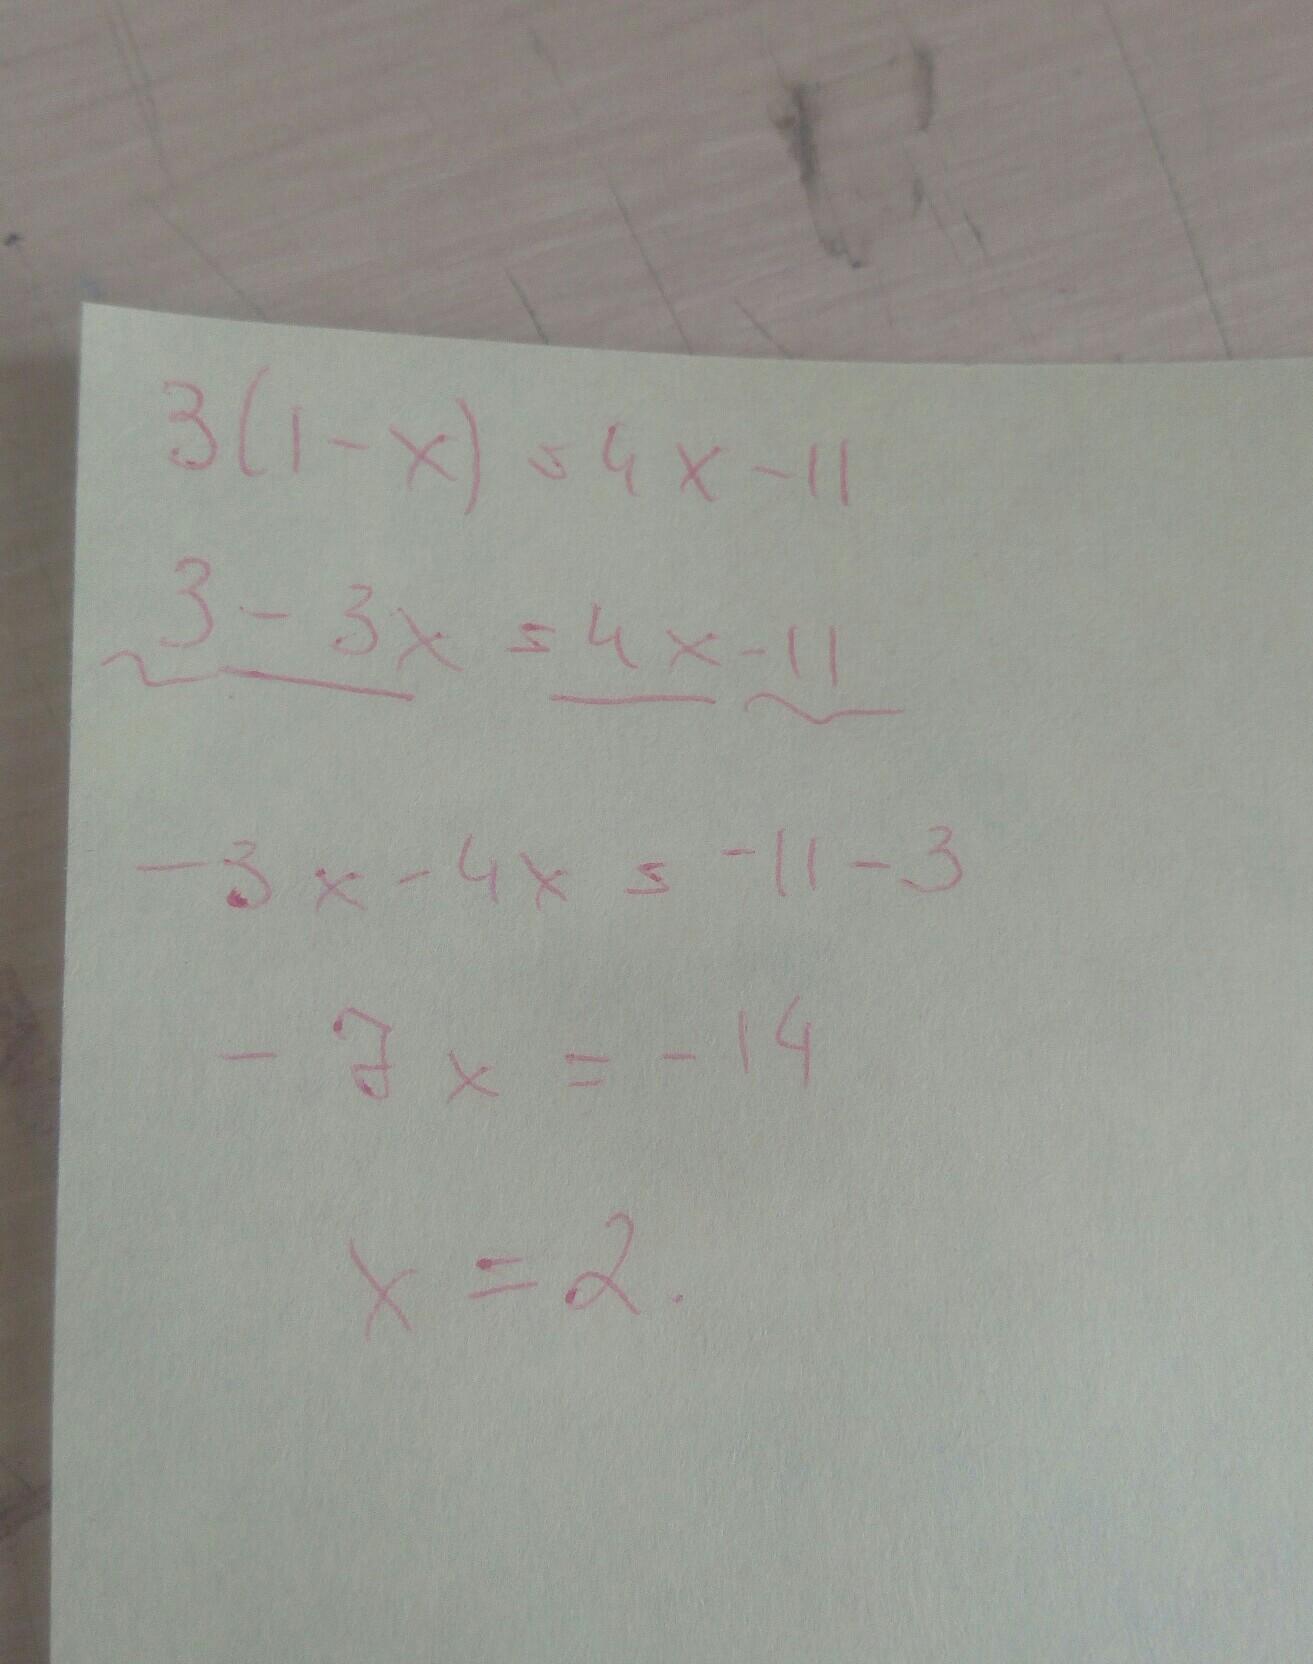 3(1-x)=4x-11
3-3x=4x-11
-3x-4x=-11-3
-7x=-14
x=2.